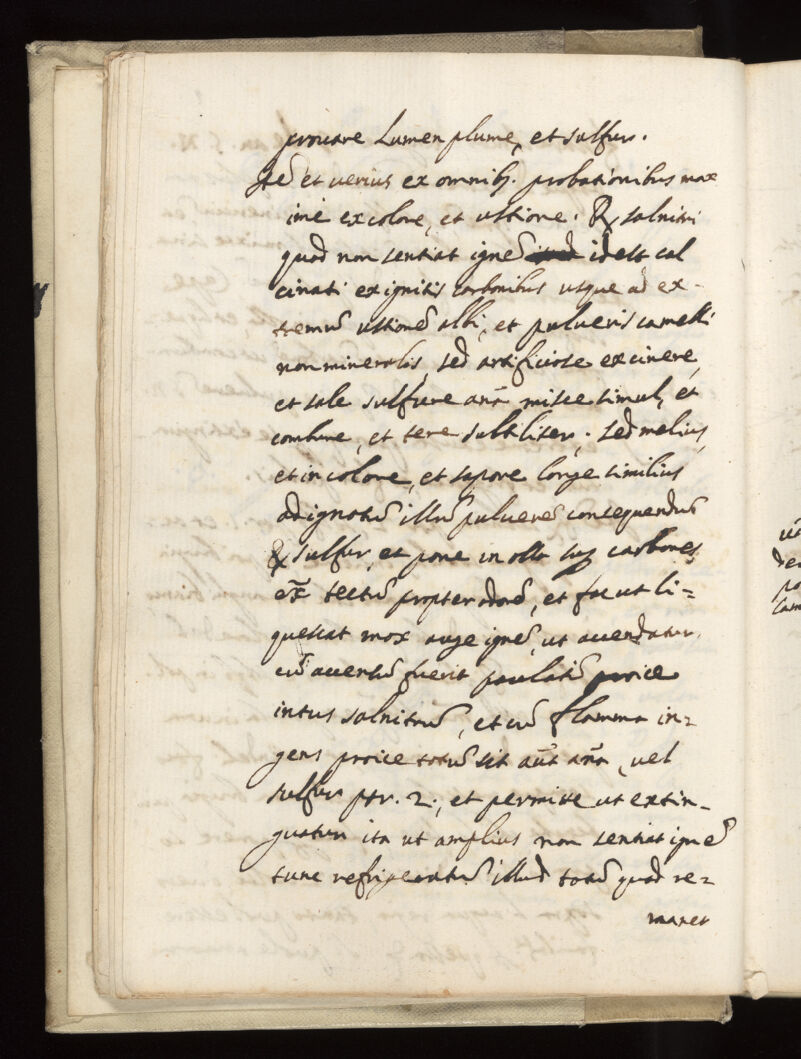 prouare Lumen plume, et sulfur.
Itē et uerius ex omnibꝫ. probationibus max
ime ex colore, et ustione. ℞ salnitri
quod non sentiat ignē idest cal
cinati ex ignitis carbonibus usque ad ex-
tremū ustionē albi, et pulueris
non mineralis, sed artificiose ex cinere,
et sale sulfure anā misce simul, et
combure, et tere subtiliter. sed melius,
et in colore, et sapore longe similius
ad ignotū illū pulverē consequendū
℞ sulfur, et pone in olla sup carbones
tectū propter odorē, et fac ut li=
quescat mox auge ignē, ut accendatur,
cū accensū fuerit paulatī proice
intus salnitrū, et cū flamma in=
gens proice totū sit aūt anā, uel
sulfur ptr. 2., et permitte ut extin_
guatur ita ut amplius non sentiat ignē
tunc refrigeratū illud totū quod re=
manet